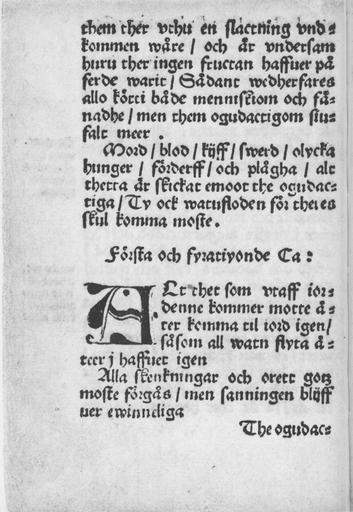 them ther vthu en slacttning vnd⸗
kommen wåre / och är vndersam
huru ther ingen fructan haffuer på
ferde warit / Sådant wedherfares
allo kötti både menniskiom och fä⸗
nadhe / men them ogudactigom siu⸗
falt meer .
Mord / blod / kijff / swerd / olycka
hunger / förderff / och plågha / alt
thetta är skickat emoot the ogudac⸗
tiga / Ty ock watufloden för theres
skul komma moste .
Första och fyratiyonde Ca :
ALt thet som vtaff ior⸗
denne kommer motte ä⸗
ter komma til iord igen /
såsom all watn flyta ä⸗
teer j haffuet igen
Alla skenkningar och orett gotz
moste förgås / men sanningen blijff
uer ewinneliga
The ogudac⸗